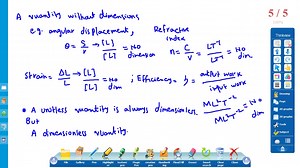 5 / 5
A quantity without dimensions
e.g. angular displacement, Refractive index
θ = S/r → [L]/[L] = No dimension n = C/V = LT⁻¹/LT⁻¹ = No dim
Strain = ΔL/L → [L]/[L] = No dim ; Efficiency = η = output work / input work
• A unitless quantity is always dimensionless ML²T⁻²/ML²T⁻² = No dim
But
A dimensionless quantity.